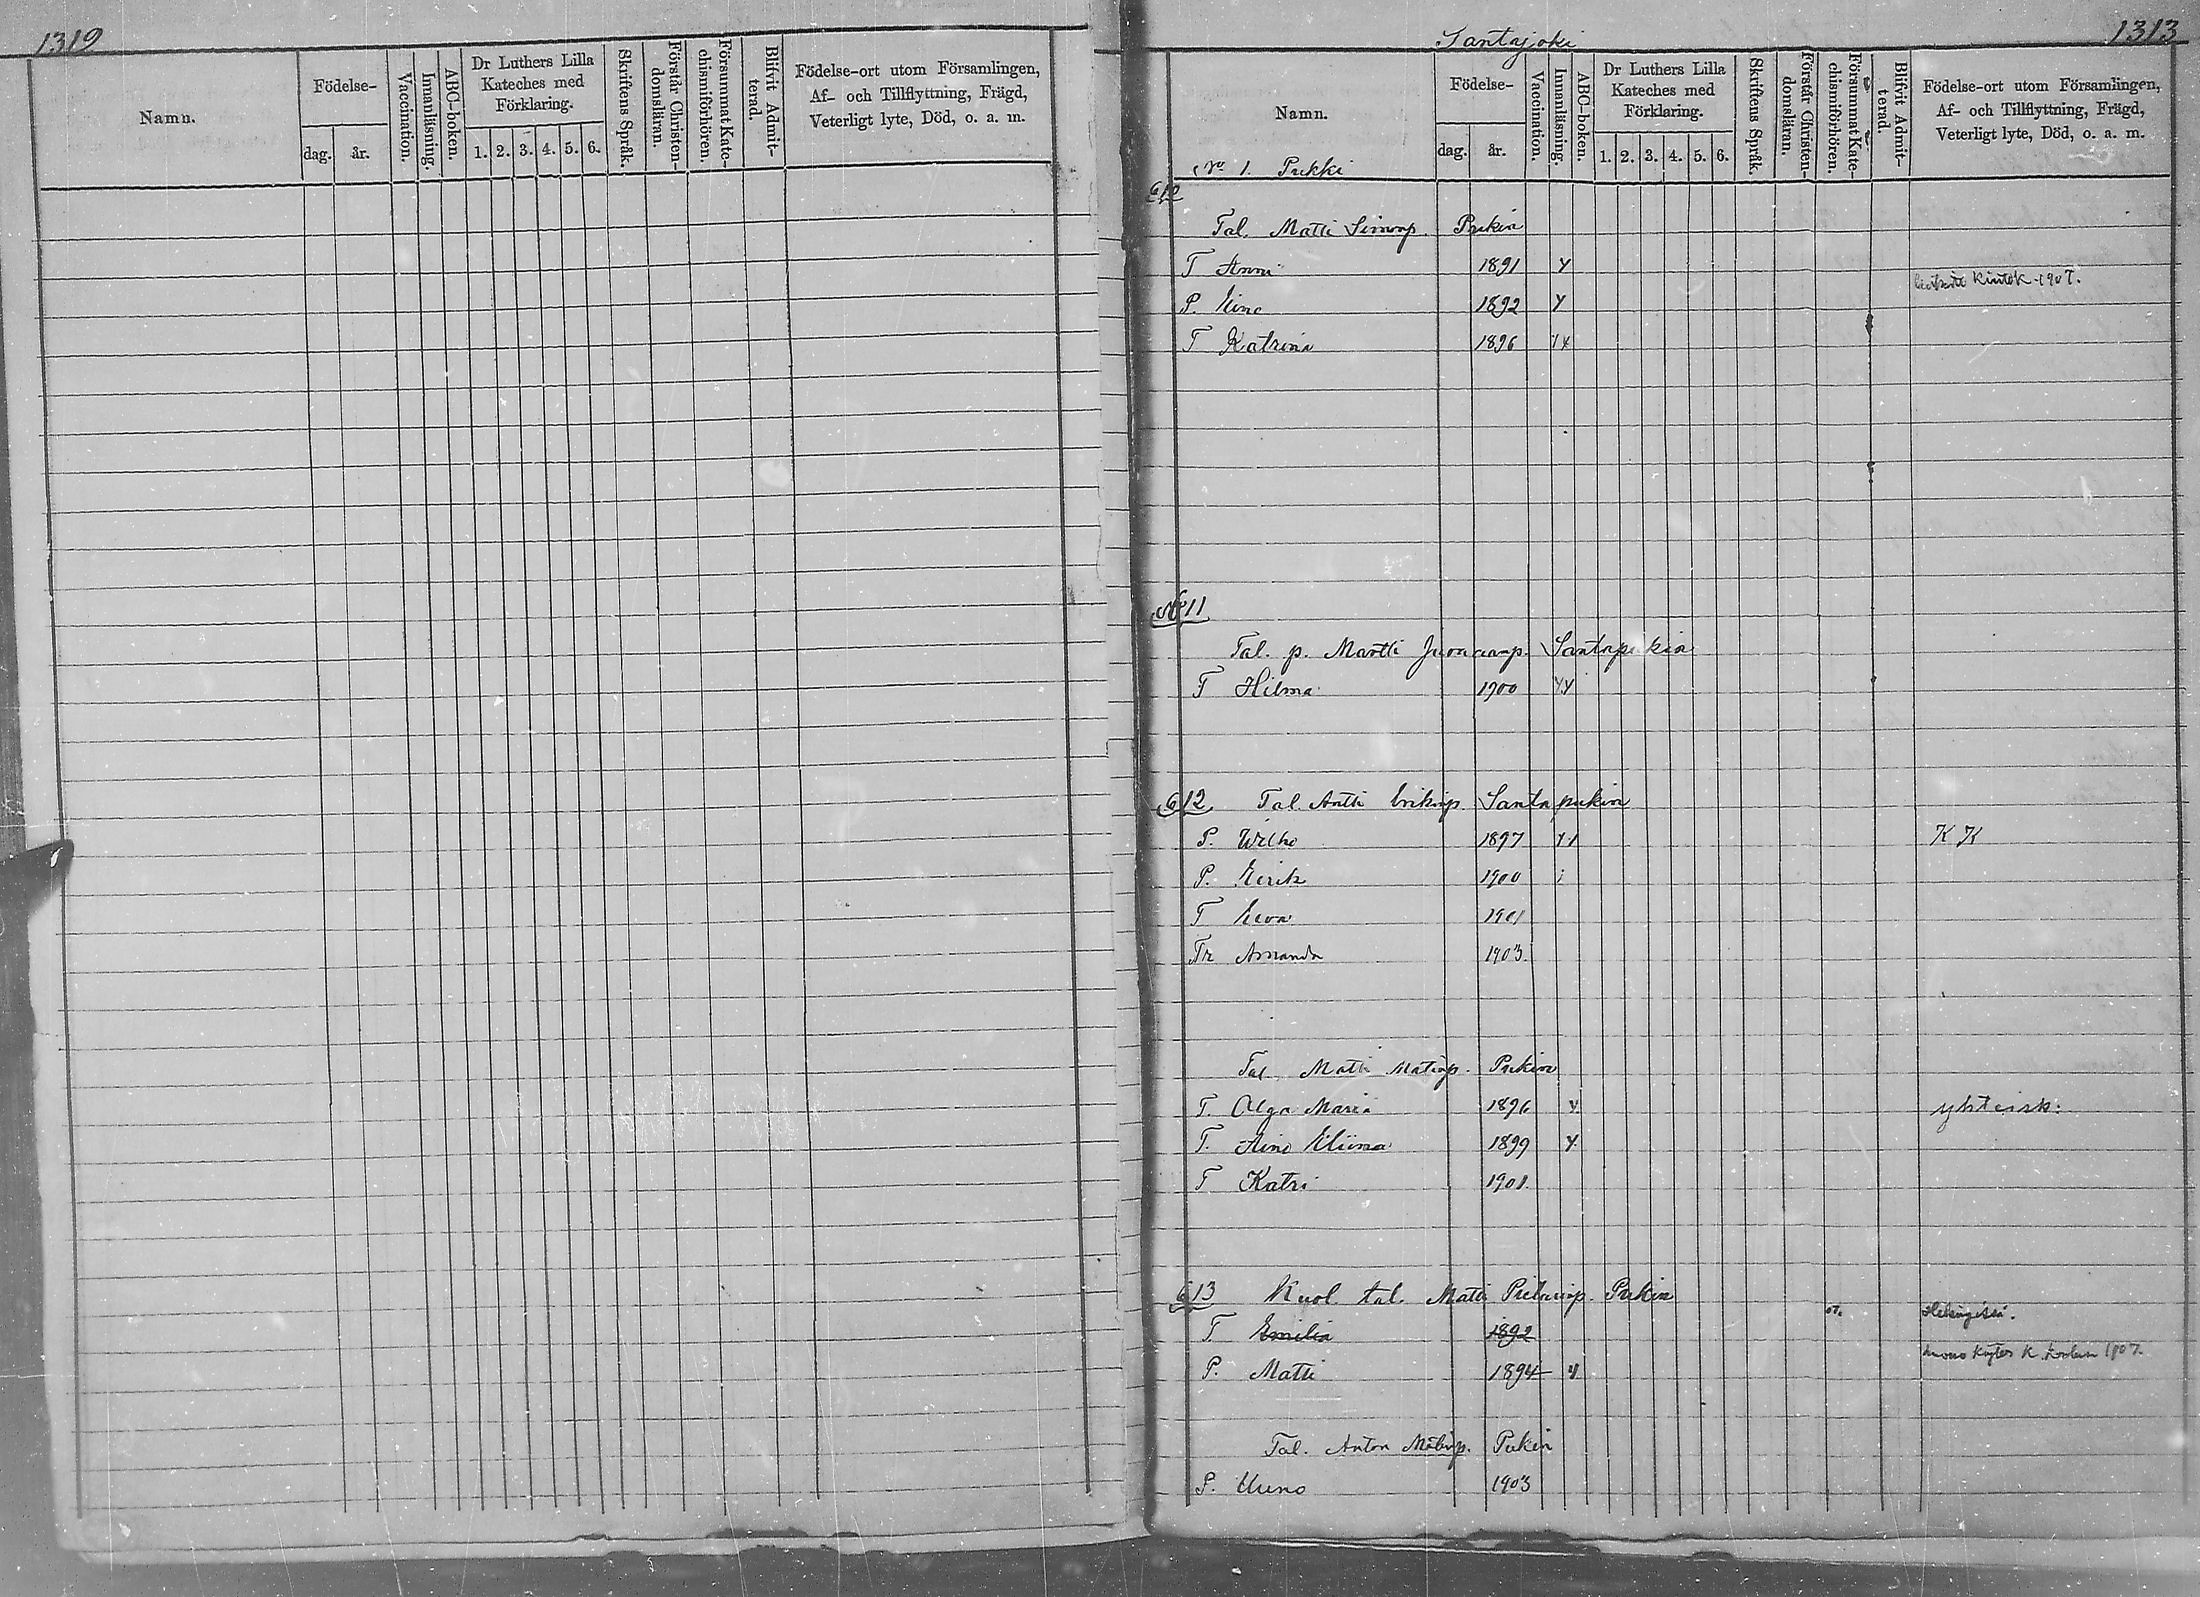 1319
Namn.
Födelse-
dag.
år.
Vaccination.
Innanläsning.
ABC-boken.
Dr Luthers Lilla
Kateches med
Förklaring.
1. 2. 3. 4. 5. 6.
Skriftens Språk.
Förstår Christen-
domsläran.
Försummat Kate-
chismiförhören.
Blifvit Admit-
terad.
Födelse-ort utom Församlingen,
Af- och Tillflyttning, Frägd,
Veterligt lyte, Död, o. a. m.
Santajoki
1313
Namn.
Födelse-
dag.
år.
Vaccination.
Innanläsning.
ABC-boken.
Dr Luthers Lilla
Kateches med
Förklaring.
1. 2. 3. 4. 5. 6.
Skriftens Språk.
Förstår Christen-
domsläran.
Försummat Kate-
chismiförhören.
Blifvit Admit-
terad.
Födelse-ort utom Församlingen,
Af- och Tillflyttning, Frägd,
Veterligt lyte, Död, o. a. m.
No 1. Pukki
612
Tal. Matti Simonp. Pukin
T Anni 1891 y
P. Eino 1892 y
T Katrina 1896
1907.
11
Tal. p. Martti Santapukin
T Hilma 1900 yy
612 Tal. Antti Erikinp. Santapukin
P. Wilho 1897 K K
P. Eerik 1900
T Eeva 1901
Tr Amanda 1903.
Tal. Matti Matinp. Pukin
T. Olga Maria 1896 y yhteisk:
T. Aino Eliina 1899 y
T Katri 1901.
613 Kuol. tal. Matti Pukin
T. Emilia 1892 Helsingissä.
P. Matti 1894 y K. 1907.
Tal. Anton Matinp. Pukin
P. Uuno 1903